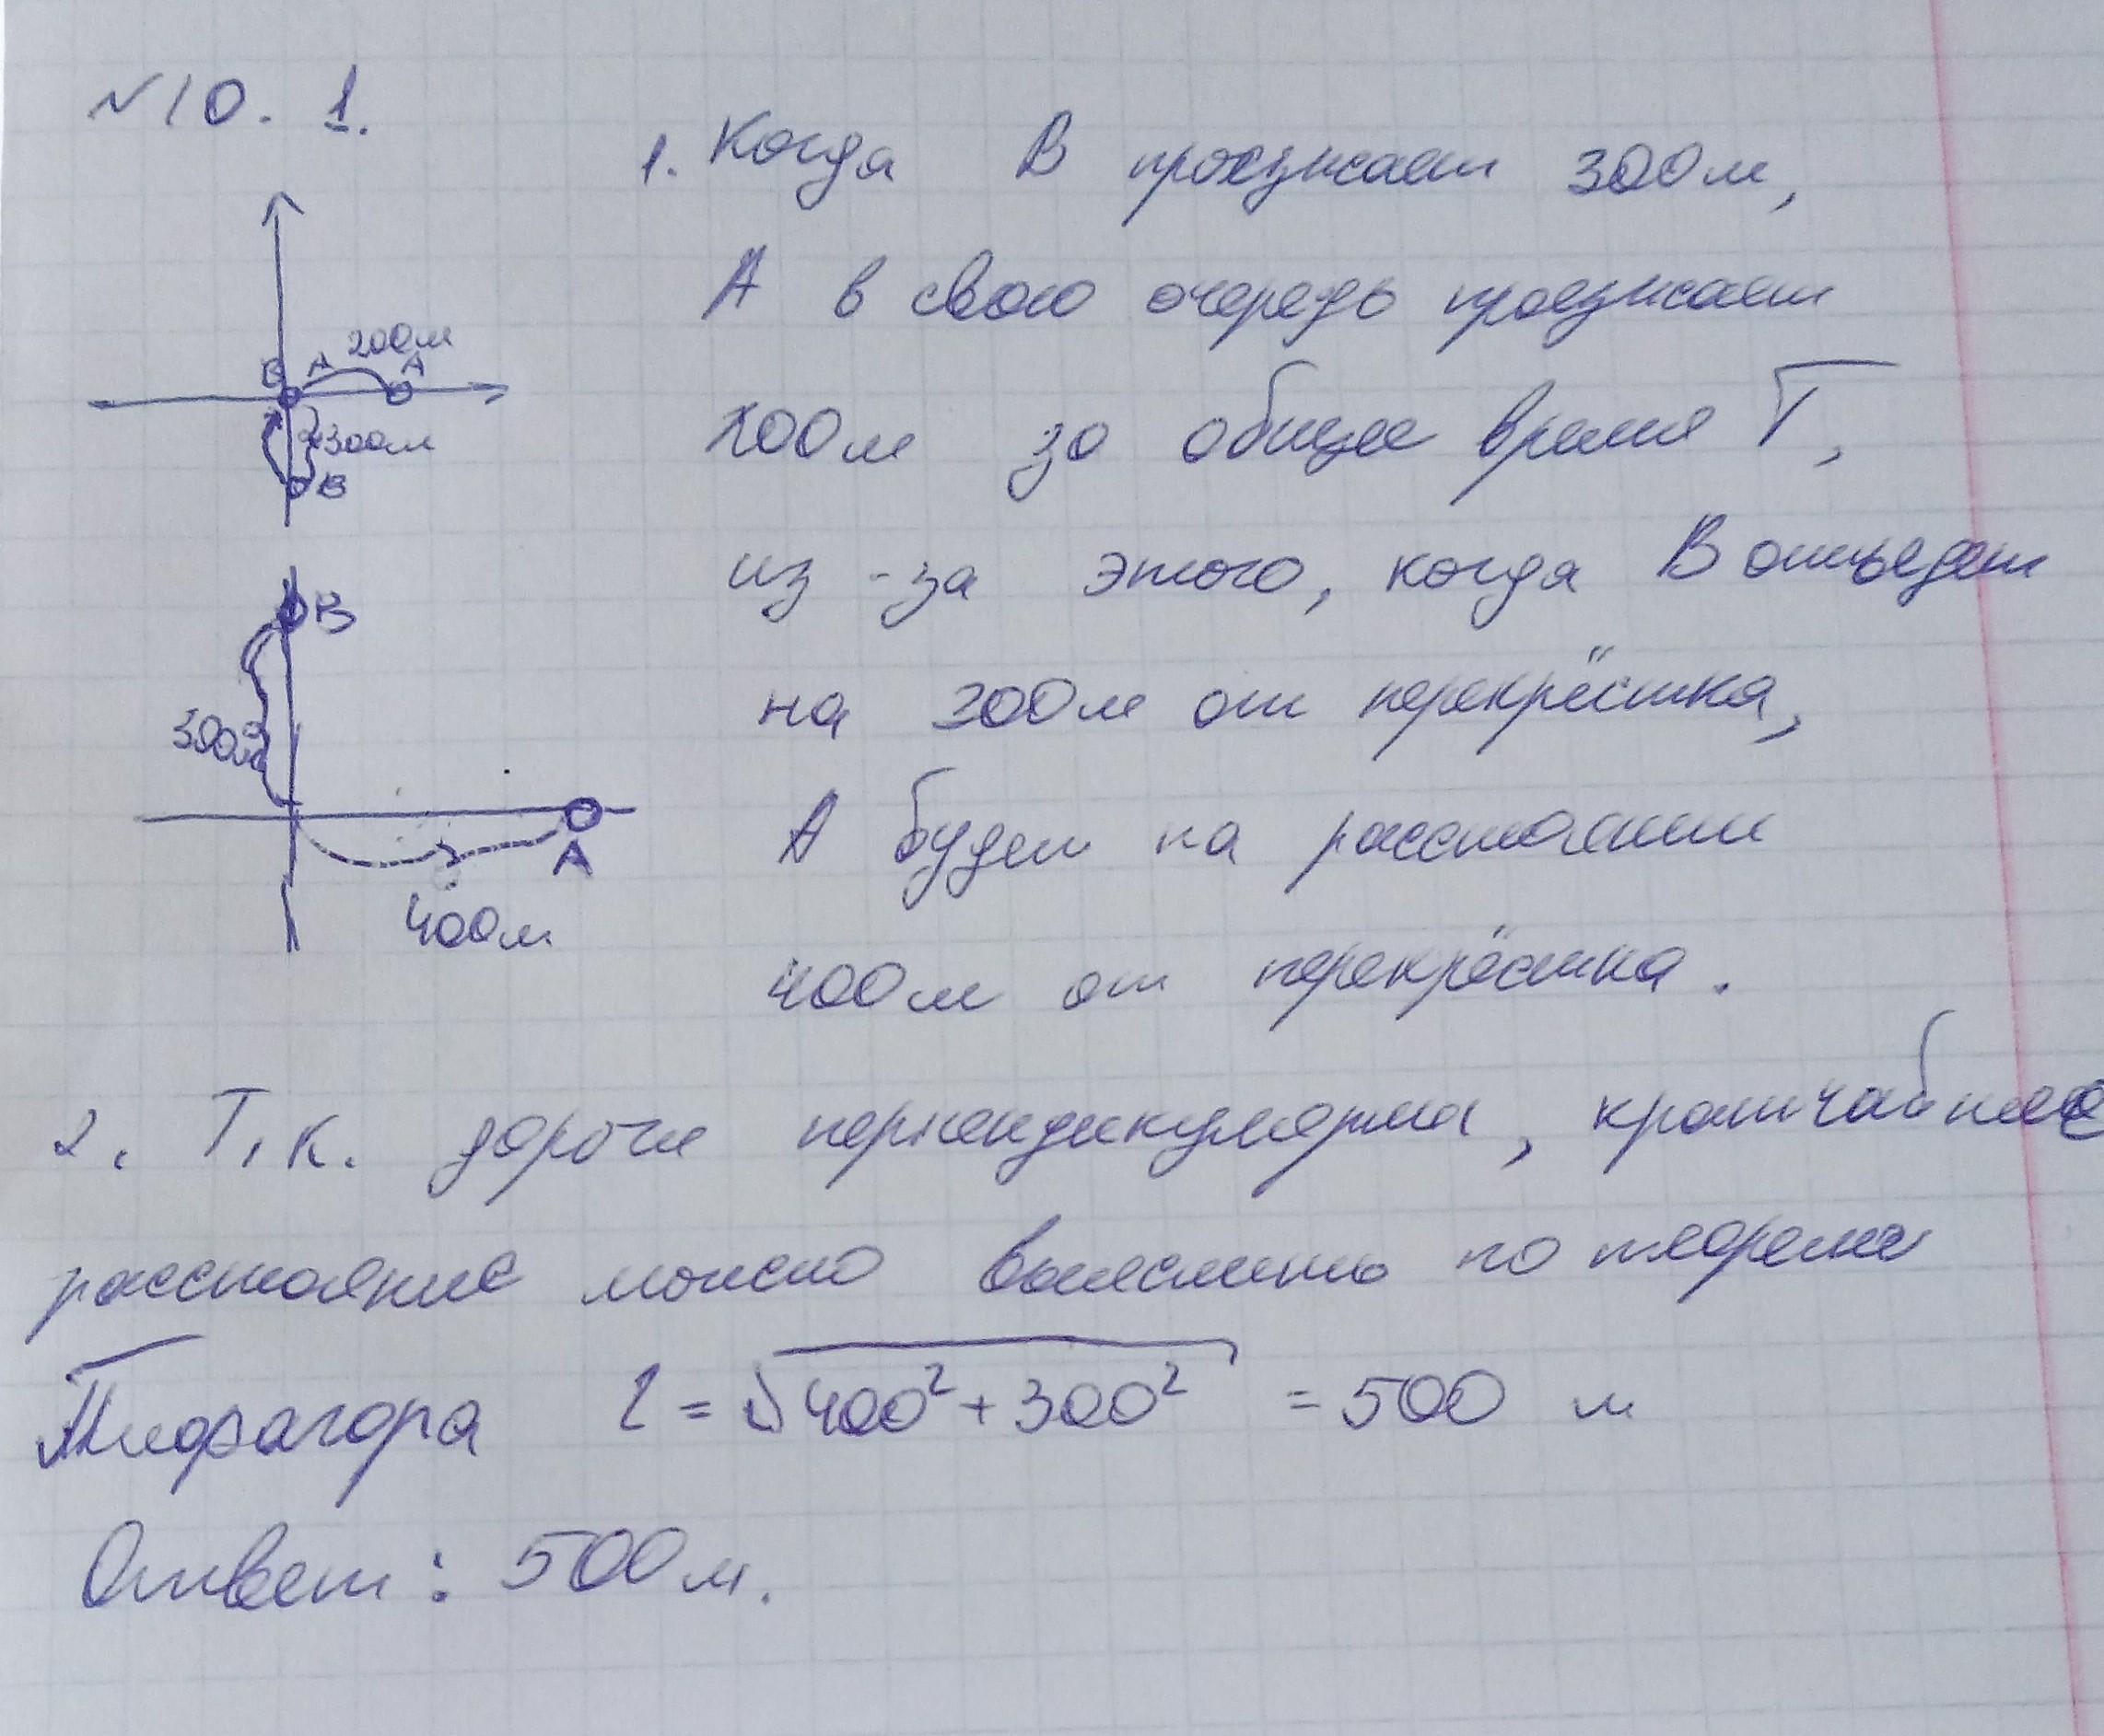 №10. 1.
1. Когда В проезжает 300м,
А в свою очередь проезжает
200м за общее время Т,
из-за этого, когда В отъедет
на 300м от перекрёстка,
А будет на расстоянии
400м от перекрёстка.
200м
В А А
300м
В
В
300м
А
400м
2. Т.к. дороги перпендикулярны, кротчайшее
расстояние можно вычислить по теореме
Пифагора l = √400² + 300² = 500 м
Ответ: 500м.